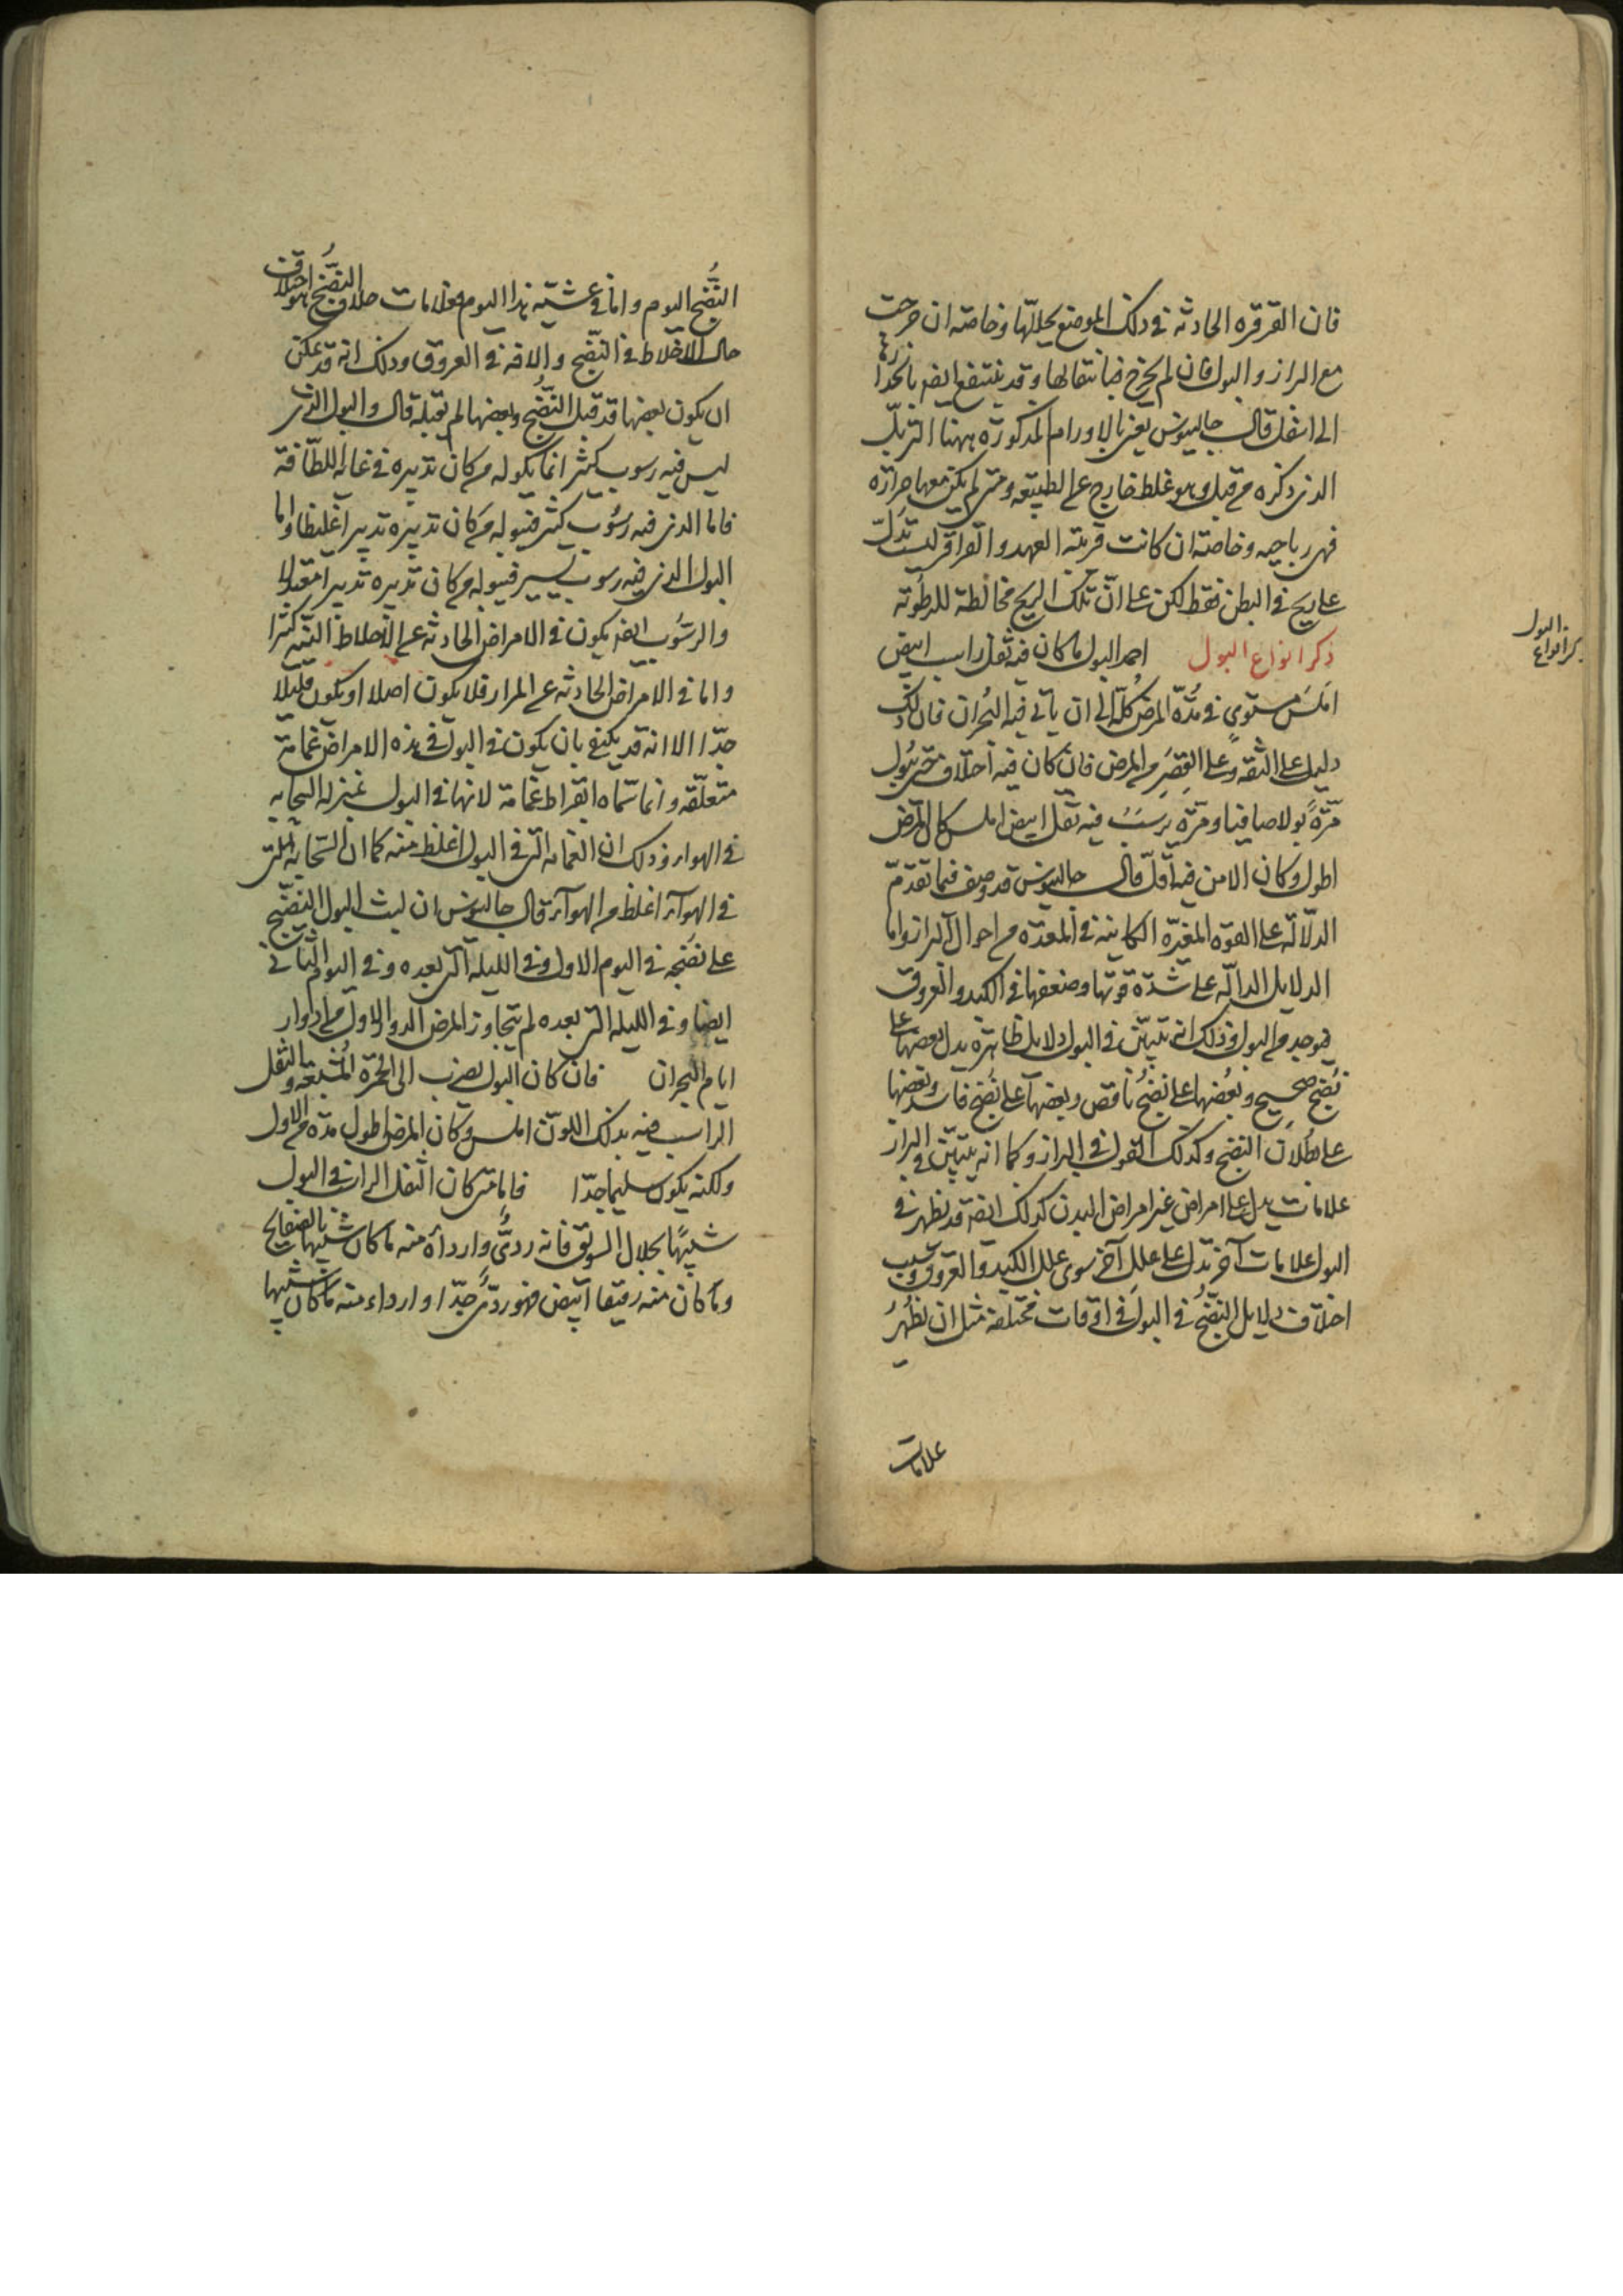 فان القرقره الحادثه فى ذلك الموضع يحللها وخاصه ان خرجت
مع البراز والبول فان لم يخرج فبانتقالها وقد ينتفع ايضا بانحدارها
الى اسفل قال جالينوس يعنى بالاورام المذكورة ههنا التربّل
الذى ذكره من قبل وهو غلظ خارج عن الطبيعه ومتى لم يكن معها حراره
فهى رياحيه وخاصته ان كانت قريبه العهد والقراقر ليست تدلّ
على ريح فى البطن فقط لكن على انّ تلك الريح مخالطة للرطوبه
ذكر انواع البول احمد البول ما كان فيه ثفل راسب ابيض
ذكر انواع البول
املس مستوى فى مدّة المرض كلّه الى ان ياتى فيه البُحران فان ذلك
دليل على الثقه وعلى القِصَر من المرض فان كان فيه اختلاف حتى يبُول
مرّةً بولا صافيا ومرّه يرسَبُ فيه ثفل ابيض املس كان المرض
اطول وكان الامن فيه اقلّ قال جالينوس قد وصف فيما تقدّم
الدلالة على القوه المغيّرة الكاينه فى المعده من احوال البراز واما
الدلايل الدالّه على شدّة قوتها وضعفها فى الكبد والعروق
فتوجد من البول وذلك انه يتبيّن فى البول دلايل ظاهرة يدل بعضها على
نُضج صحيح وبعضها على نضج ناقص وبعضها على نضج فاسد وبعضها
على بطلان النضج وكذلك القول فى البراز وكما انه يتبيّن فى البراز
علامات يدل على امراض غير امراض البدن كذلك ايضا قد يظهر فى
البول علامات آخر تدل على علل آخر سوى علل الكبد والعروق وسبب
اختلاف دلايل النضج فى البول فى اوقات مختلفة مثل ان يظهُرَ
علامات
النُّضج اليوم واما فى عشيّة هذا اليوم فعلامات خلاف النضج هو اختلاف
حال الاخلاط فى النضج والافه فى العروق وذلك انه قد يمكن
ان يكون بعضها قد قبل النُّضج وبعضها لم يقبله قال والبول الذى
ليس فيه رسوب كثير انما يكوله من كان تدبيره فى غايه اللطافة
فاما الذى فيه رسُوب كثير فيبوله من كان تدبيره تدبيرا غليظا واما
البول الذى فيه رسوب يسير فيبوله من كان تدبيره تدبيرا معتدلا
والرسُوب ايضا يكون فى الامراض الحادثه عن الاخلاط النيّه كثيرا
واما فى الامراض الحادثه عن المرار فلا يكون اصلا او يكون قليلا
جدّا الا انه قد يكتفى بان يكون فى البول فى هذه الامراض غمامة
متعلّقه وانما سمّاه ابقراط غمامة لانها فى البول بمنزله السحابه
فى الهواء وذلك ان الغمامه التى فى البول اغلظ منه كما ان السّحابه التى
فى الهوآء اغلظ من الهوآء قال جالينوس ان لبث البول النضيج
على نضجه فى اليوم الاول وفى الليله التى بعده وفى اليوم الثانى
ايضا وفى الليله التى بعده لم يتجاوز المرض الدور الاول من ادوار
ايام البحران فان كان البول يضرب الى الحُمرّة المُشبعه والثفل
الراسب فيه بذلك اللون املس كان المرض اطول مدّه من الاول
ولكنه يكون سليما جدّا فاما متى كان الثفل الراسب فى البول
شبيهًا بجلال السويق فانه ردىٌّ وارداه منه ما كان شبيها بالصفايح
وما كان منه رقيقا ابيض فهو ردىٌّ جدّا واردا منه ما كان شبيها